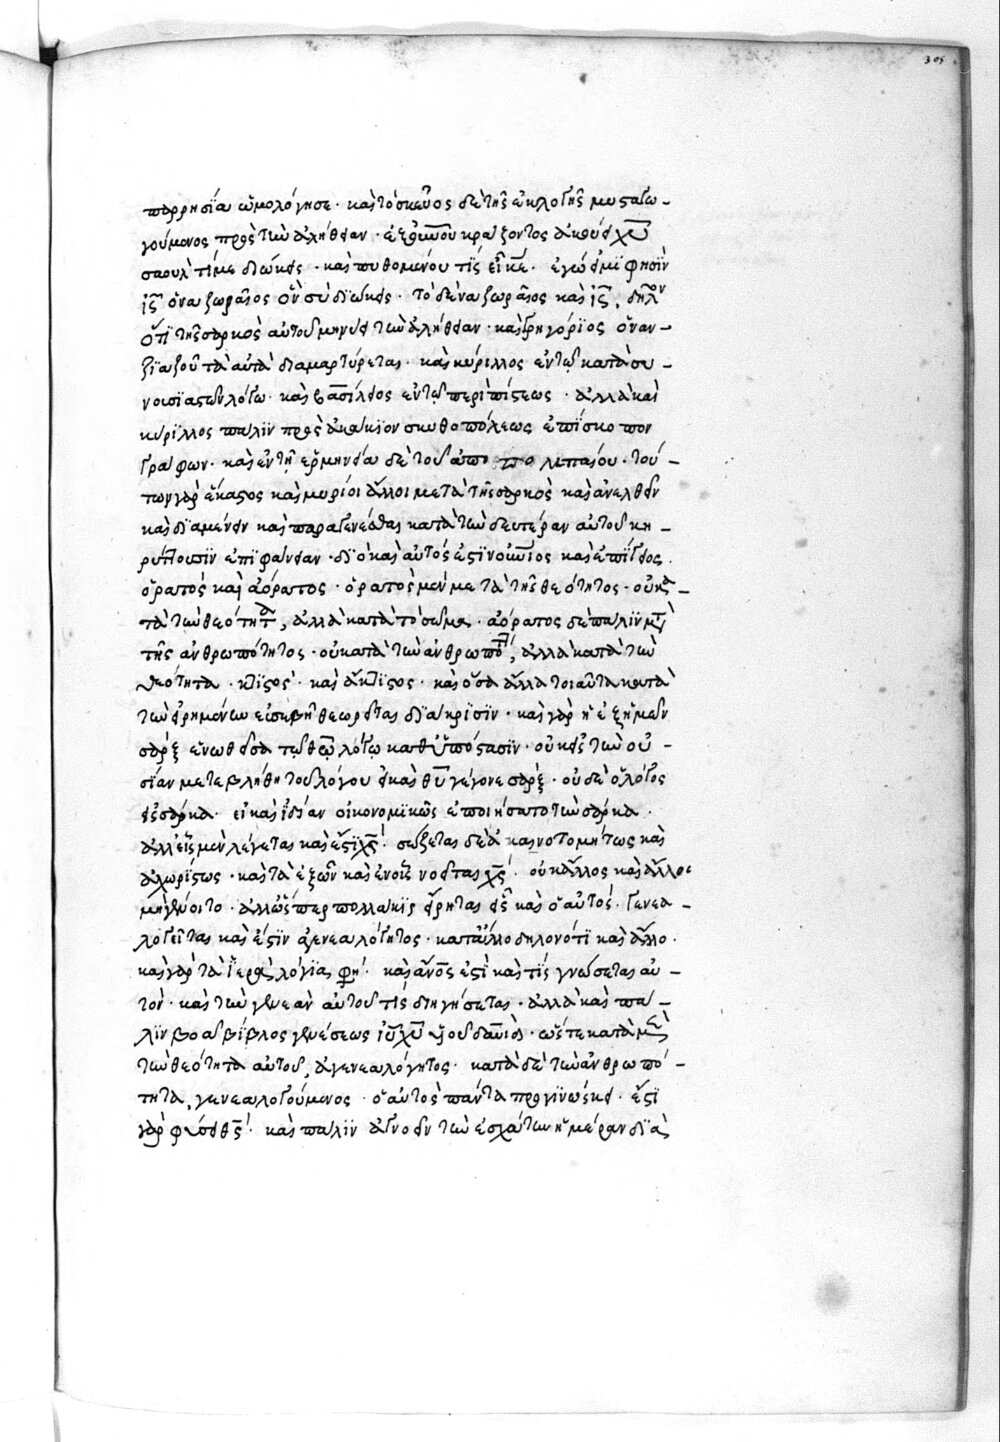 305
παρρησία ὡμολόγησε · καὶ τὸ σκεῦος δὲ τῆς ἐκλογῆς μυσταγω –
γούμενος πρὸς τὴν ἀλήθειαν · ἐξ οὐνοῦ κράζοντος ἀκούει χῦ
σαοὺλ τί με διώκεις · καὶ πυθομένου τίς εἶ κε · ἐγώ εἰμϊ φησὶν
ις ὁ ναζωραῖος ὃν σὺ διώκεις · τὸ δὲ ναζωραῖος καὶ ις, δῆλον
ὅτϊ τῆς σαρκὸς αὐτοῦ μηνύει τὴν ἀλήθειαν · καὶ γρηγόριος ὁ ναν –
ζϊαζοῦ τὰ αὐτὰ διαμαρτύρεται · καὶ κύριλλος ἐν τῷ κατὰ συ –
νουσϊαστῶν λόγω · καὶ βασίλειος ἐν τῷ περὶ πίστεως · ἀλλὰ καὶ
κυρϊλλος πάλϊν πρὸς ἀκάκϊον σκυθοπόλεως ἐπΐσκοπον
γράφων · καὶ ἐν τῇ ἑρμηνεία δὲ τοῦ ἀπο λεπαίου · τού –
των γὰρ ἕκαστος καὶ μυρίοι ἄλλοι μετὰ τῆς σαρκὸς καὶ ἀνελθεῖν
καὶ δϊαμένειν καὶ παραγενέσθαι κατὰ τὴν δευτέραν αὐτοῦ κη –
ρύττουσϊν ἐπϊφάνειαν · δϊὸ καὶ αὐτός ἐστϊν οὐνιος καὶ ἐπΐγειος
ὁρατὸς καὶ ἀόρατος · ὁρατὸς μὲν μετὰ τῆς θεότητος · οὐ κα –
τὰ τὴν θεότητα, ἀλλὰ κατὰ τὸ σῶμα · ἀόρατος δὲ πάλϊν μετὰ
τῆς ἀνθρωπότητος · οὐ κατὰ τὴν ἀνθρωπότητα, ἀλλὰ κατὰ τὴν
θεότητα · κτϊστὸς · καὶ ἄκτϊστος · καὶ ὅσα ἄλλα τοιαῦτα κατὰ
τὴν εἰρημένην εἰσεβῆ θεωρεῖται δϊάκρϊσϊν · καὶ γὰρ ἡ ἐξ ἡμῶν
σὰρξ ἑνωθεῖσα τῷ θῶ λόγω καθ' ὑπόστασϊν · οὐκ εἰς τὴν οὐ –
σίαν μετεβλήθη τοῦ λόγου εἰ καὶ θῦ γέγονε σὰρξ · οὐδὲ ὁ λόγος
εἰς σάρκα · εἰ καὶ ἰδίαν οἰκονομϊκῶς ἐποιήσατο τὴν σάρκα ·
ἀλλ' εἷς μὲν λέγεται καὶ ἔστϊ χς · σώζεται δὲ ἀκαινοτομήτως καὶ
ἀχωρίστως · καὶ τὰ ἐξ ὧν καὶ ἐν οἷς νοεῖται χς · οὐκ ἄλλος καὶ ἄλλος
μὴ γένοιτο · ἀλλ' ὥσπερ πολλάκϊς εἴρηται εἷς καὶ ὁ αὐτός · γενεα –
λογεῖται καὶ ἔστϊν ἀγενεαλόγητος · κατ' ἄλλο δηλονότϊ καὶ ἄλλο ·
καὶ γὰρ τὰ ἱερὰ λόγϊά φησι · καὶ ἄνος ἐστὶ καὶ τίς γνώσεται αὐ –
τόν · καὶ τὴν γενεὰν αὐτοῦ τίς διηγήσεται · ἀλλὰ καὶ πά –
λϊν βοᾶ βίβλος γενέσεως ιῦ χῦ υἱοῦ δαυίδ · ὥστε κατὰ μὲν
τὴν θεότητα αὐτοῦ, ἀγενεαλόγητος · κατὰ δὲ τὴν ἀνθρωπό –
τητα, γενεαλογούμενος · ὁ αὐτὸς πάντα προγϊνώσκει · ἔστϊ
γὰρ φύσει θς · καὶ πάλϊν ἀγνοεῖν τὴν ἐσχάτην ἡμέραν δϊὰ